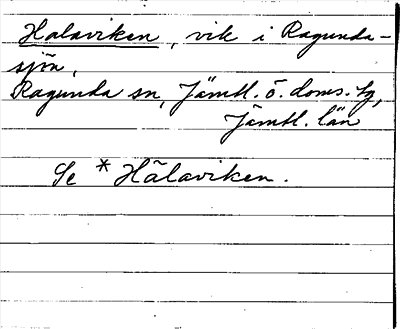 Halaviken, vik i Ragunda-
sjön,
Ragunda sn, Jämtl. ö. doms. tg,
Jämtl. län
Se * Hålaviken.